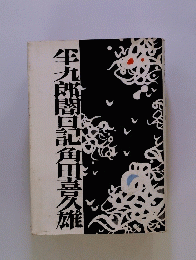 半九郎闇日記 角田喜久雄